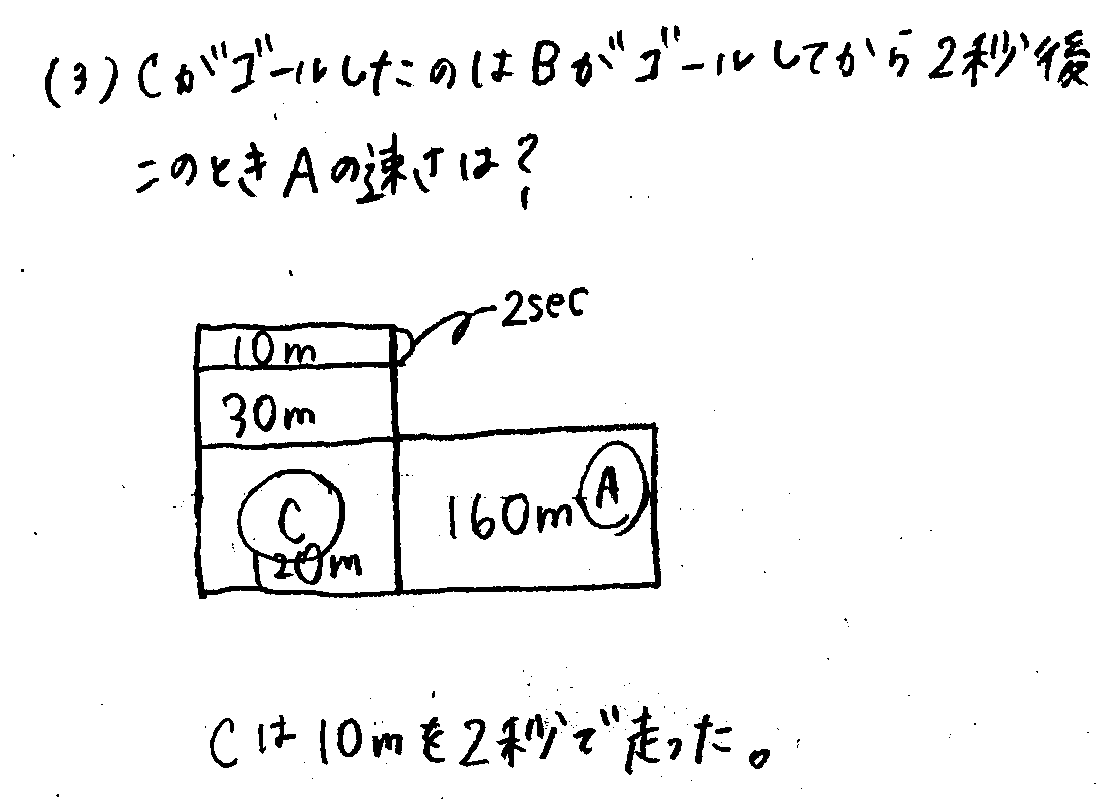 (3) CがゴールしたのはBがゴールしてから2秒後
このときAの速さは?
2sec
10m
30m
C
160m A
120m
Cは10mを2秒で走った。